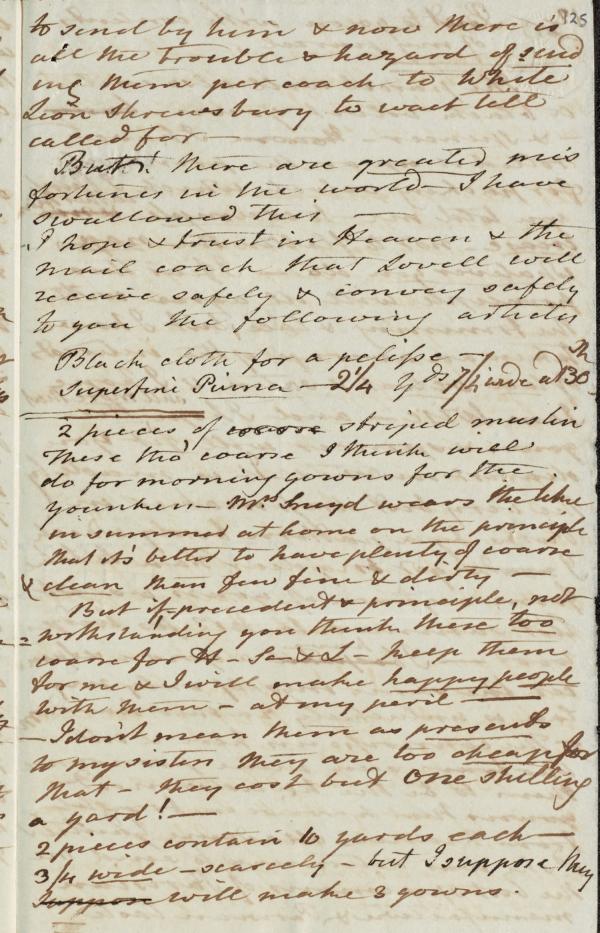 125
to send by him & now there is
all the trouble & hazard of send
ing them per coach to White
Lion Shrewsbury to wait till
called for —
But! there are greater mis
fortunes in the world — I have
swallowed this —
I hope & trust in Heaven & the
mail coach that Lovell will
receive safely & convey safely
to you the following articles
Black cloth for a pelisse —
Superfine — 2 1/4 yds 7/4 wide at 30 Sh
2 pieces of coarse striped muslin
These tho' coarse I think will
do for morning gowns for the
younkers — Mrs Sneyd wears the like
in summer at home on the principle
that it's better to have plenty of coarse
& clean than few fine & dirty —
But if precedent & principle, not
= withstanding you think these too
coarse for H — So — & L — keep them
for me & I will make happy people
with them — at my peril —
— I don't mean them as presents
to my sisters they are too cheap for
that — they cost but one shilling
a yard! —
2 pieces contain 10 yards each —
3/4 wide — scarcely — but I suppose they
suppose will make 3 gowns.